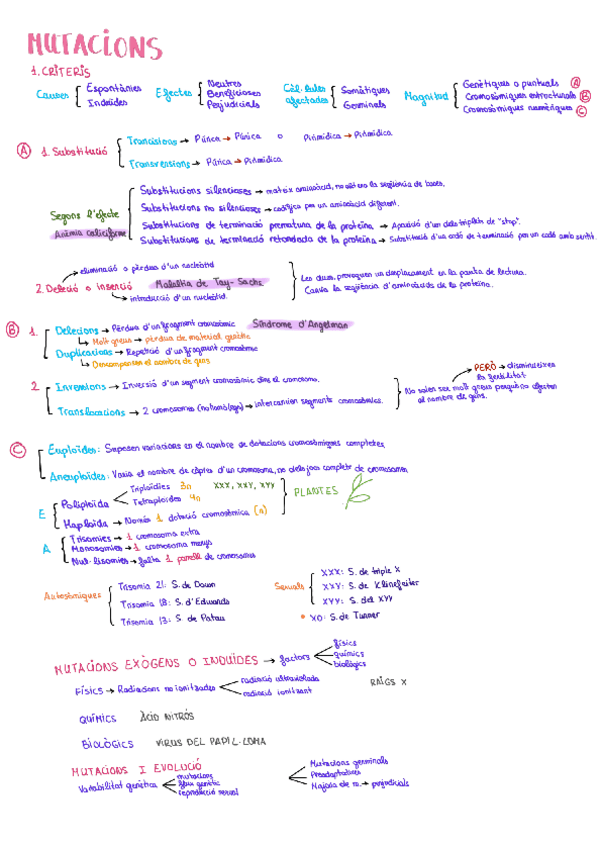 MUTACIONS
1. CRITERIS
Causes { Espontànies
Induïdes
Efectes { Neutres
Beneficioses
Perjudicials
Cèl·lules afectades { Somàtiques
Germinals
Magnitud { Genètiques o puntuals A
Cromosòmiques estructurals B
Cromosòmiques numèriques C
A 1. Substitució { Transicions → Púrica → Púrica o Pirimídica → Pirimídica
Transversions → Púrica → Pirimídica
Segons l'efecte
Anèmia falciforme
Substitucions silencioses → mateix aminoàcid, no altera la seqüència de bases.
Substitucions no silencioses → codifica per un aminoàcid diferent.
Substitucions de terminació prematura de la proteïna → Aparició d'un dels triplets de "stop".
Substitucions de terminació retardada de la proteïna → Substitució d'un codó de terminació per un codó amb sentit.
→ eliminació o pèrdua d'un nucleòtid
2. Deleció o inserció Malaltia de Tay-Sachs
→ introducció d'un nucleòtid.
Les dues provoquen un desplaçament en la pauta de lectura.
Canvia la seqüència d'aminoàcids de la proteïna.
B 1. Delecions → Pèrdua d'un fragment cromosòmic Síndrome d'Angelman
↳ Molt greus → pèrdua de material genètic
Duplicacions → Repetició d'un fragment cromosòmic
↳ Descompensen el nombre de gens
2 Inversions → Inversió d'un segment cromosòmic dins el cromosoma.
Translocacions → 2 cromosomes (no homòlegs) → intercanvien segments cromosòmics.
PERÒ → disminueixen la fertilitat
No solen ser molt greus perquè no afecten al nombre de gens.
C Euploïdes: Suposen variacions en el nombre de dotacions cromosòmiques completes.
Aneuploïdes: Varia el nombre de còpies d'un cromosoma, no dels jocs complets de cromosomes
E Poliploïdia { Triploïdies 3n XXX, XXY, XYY
Tetraploïdes 4n
Haploïdia → Només 1 dotació cromosòmica (n)
} PLANTES
A Trisomies → 1 cromosoma extra
Monosomies → 1 cromosoma menys
Nul·lisomies → falta 1 parell de cromosomes
Autosòmiques
Trisomia 21: S. de Down
Trisomia 18: S. d'Edwards
Trisomia 13: S. de Patau
Sexuals
XXX: S. de triple X
XXY: S. de Klinefelter
XYY: S. del XYY
• XO: S. de Turner
MUTACIONS EXÒGENS O INDUÏDES → factors
físics
químics
biològics
FÍSICS → Radiacions no ionitzades
radiació ultraviolada
radiació ionitzant
RAIGS X
QUÍMICS ÀCID NITRÓS
BIOLÒGICS VIRUS DEL PAPIL·LOMA
MUTACIONS I EVOLUCIÓ
Variabilitat genètica
mutacions
flux genètic
reproducció sexual
Mutacions germinals
Preadaptatives
Majoria de m. → perjudicials